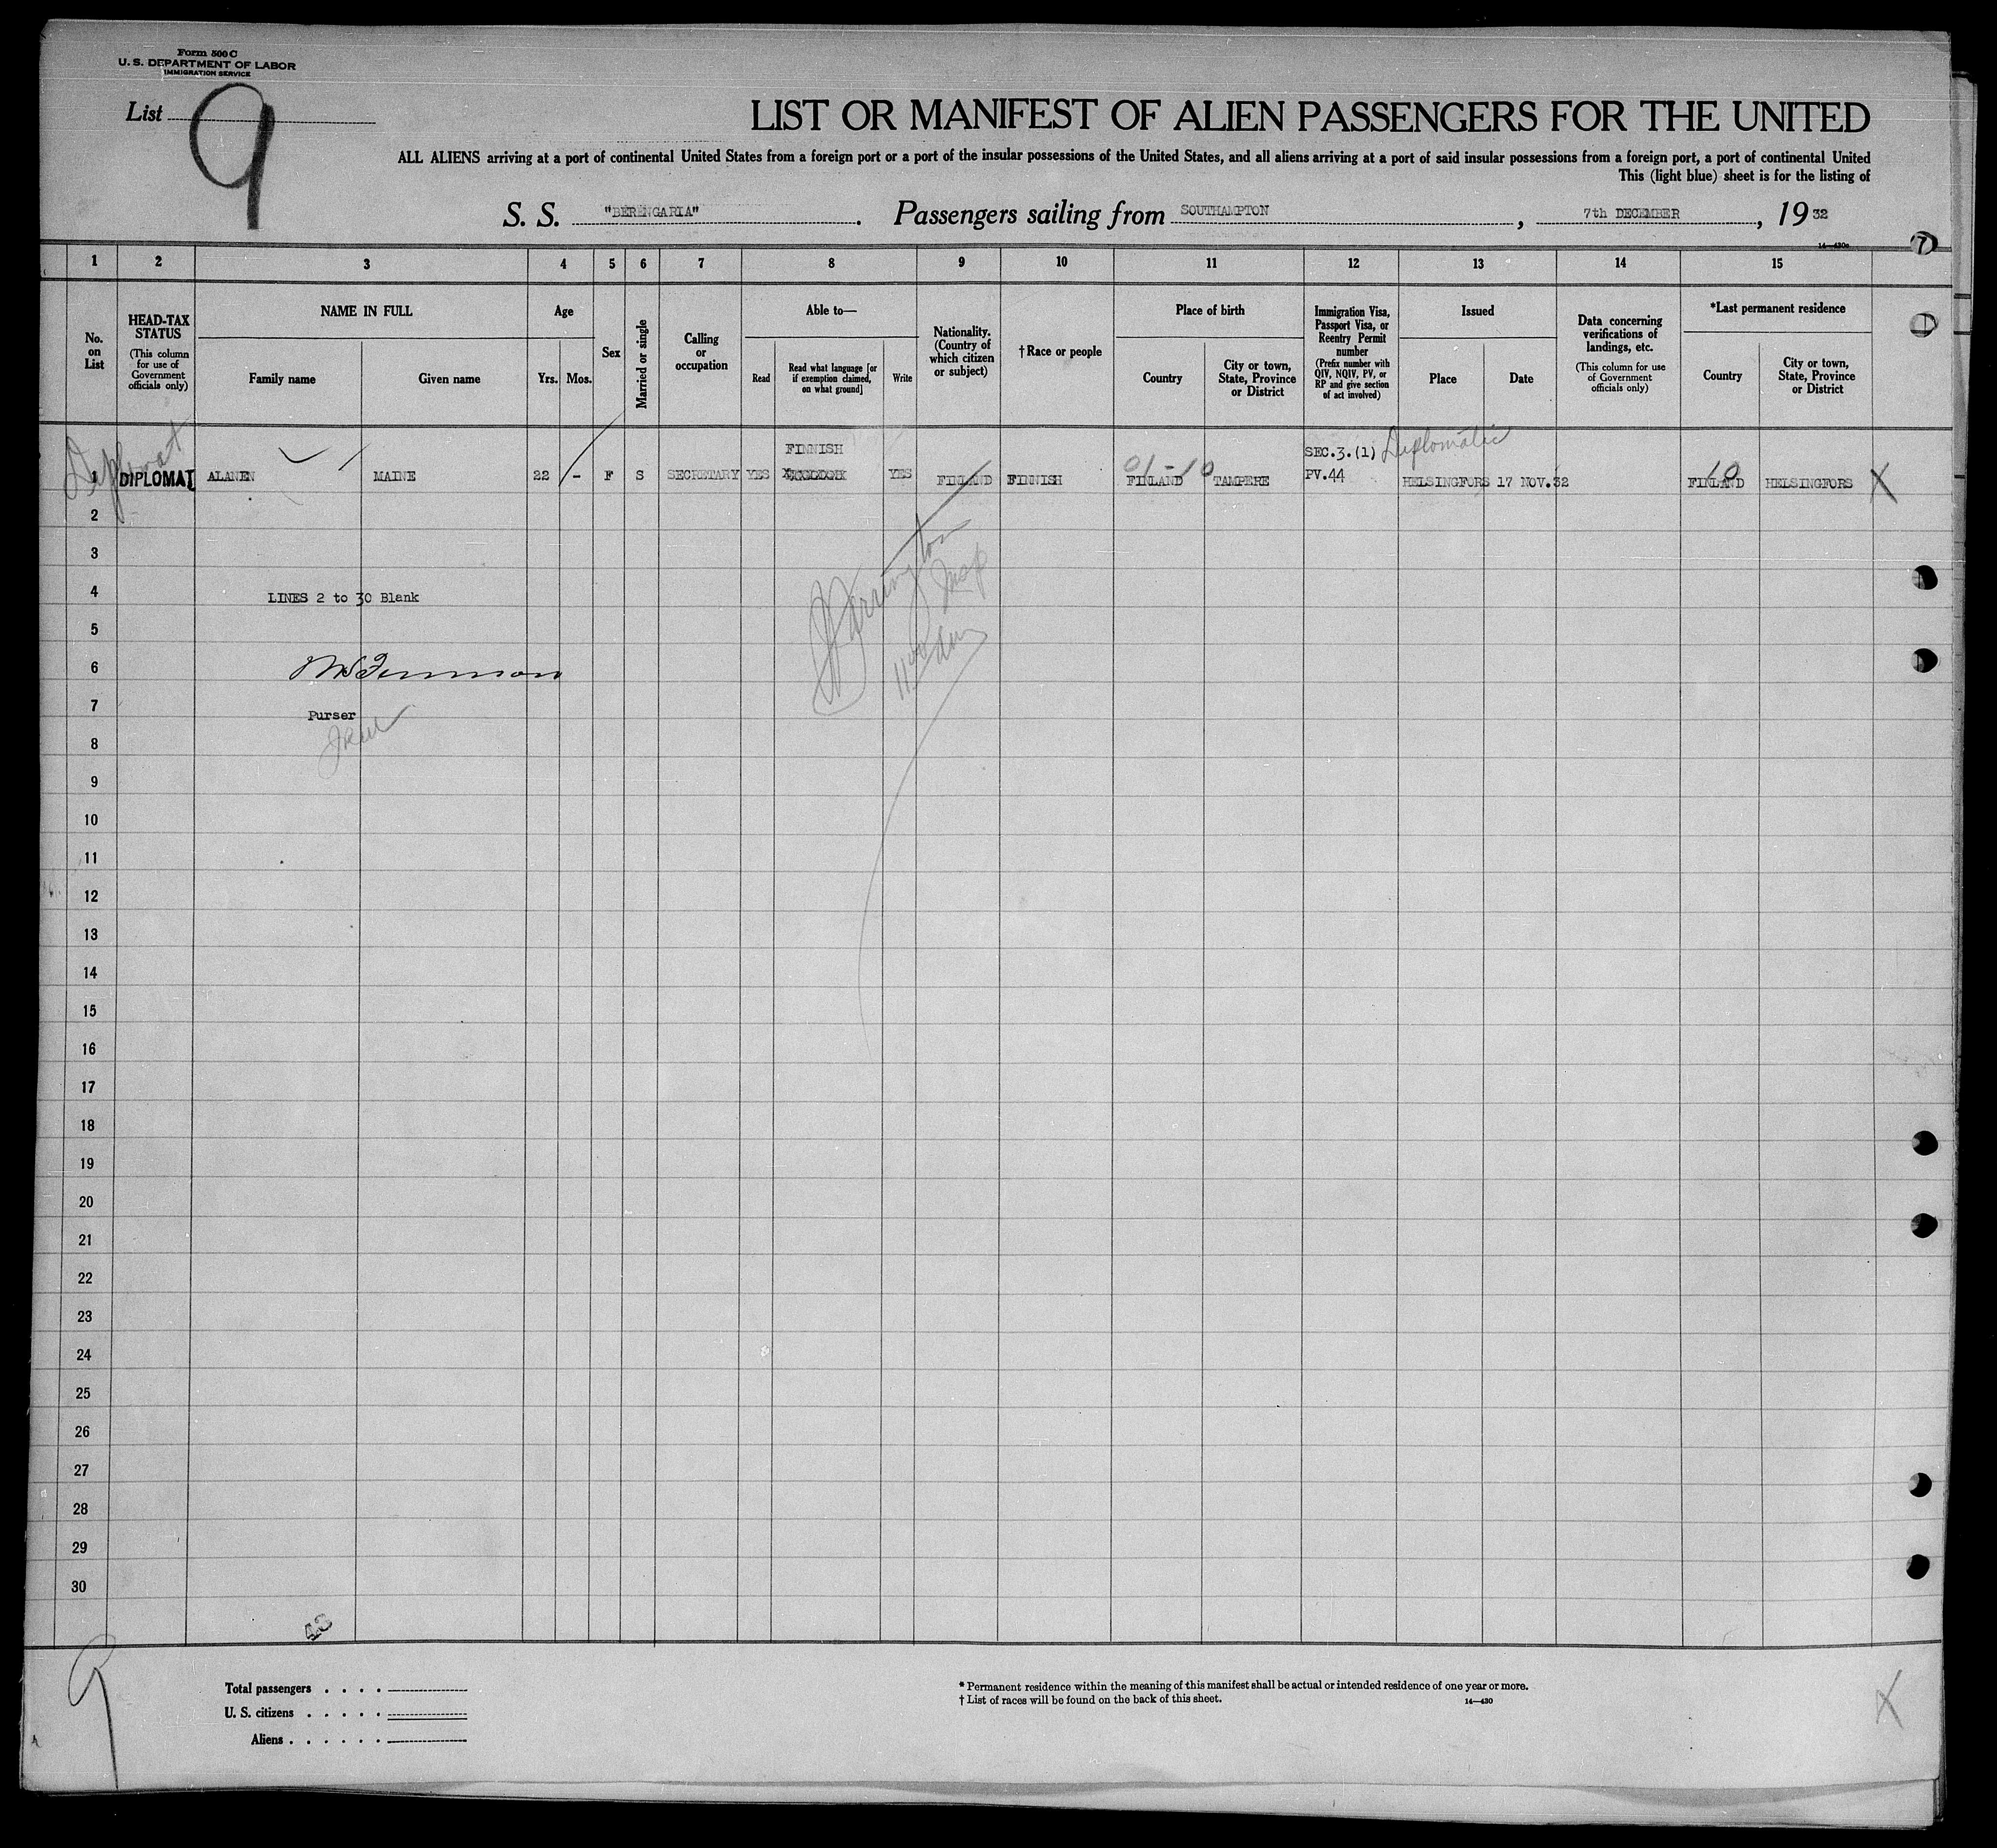 Form 500 C
U. S. DEPARTMENT OF LABOR
IMMIGRATION SERVICE
List 9
LIST OR MANIFEST OF ALIEN PASSENGERS FOR THE UNITED
ALL ALIENS arriving at a port of continental United States from a foreign port or a port of the insular possessions of the United States, and all aliens arriving at a port of said insular possessions from a foreign port, a port of continental United
This (light blue) sheet is for the listing of
S. S. "BERENGARIA". Passengers sailing from SOUTHAMPTON, 7th DECEMBER, 19 32
14—430a
7
1 2 3 4 5 6 7 8 9 10 11 12 13 14 15
No. on List
HEAD-TAX STATUS
(This column for use of Government officials only)
NAME IN FULL
Family name
Given name
Age
Yrs. Mos.
Sex
Married or single
Calling or occupation
Able to—
Read
Read what language [or if exemption claimed, on what ground]
Write
Nationality. (Country of which citizen or subject)
† Race or people
Place of birth
Country
City or town, State, Province or District
Immigration Visa, Passport Visa, or Reentry Permit number
(Prefix number with QIV, NQIV, PV, or RP and give section of act involved)
Issued
Place
Date
Data concerning verifications of landings, etc.
(This column for use of Government officials only)
*Last permanent residence
Country
City or town, State, Province or District
Diplomat
FINNISH
SEC.3.(1) Diplomatic
01-10
10
1 DIPLOMAT ALANEN MAINE 22 - F S SECRETARY YES YES FINLAND FINNISH FINLAND TAMPERE PV.44 HELSINGFORS 17 NOV.32 FINLAND HELSINGFORS X
2
3
4 LINES 2 to 30 Blank
Insp
5
11 00 am
6
7
Purser
8
9
10
11
12
13
14
15
16
17
18
19
20
21
22
23
24
25
26
27
28
29
30
9
Total passengers . . . .
U. S. citizens . . . . .
Aliens . . . . . .
* Permanent residence within the meaning of this manifest shall be actual or intended residence of one year or more.
† List of races will be found on the back of this sheet.
14—430
X